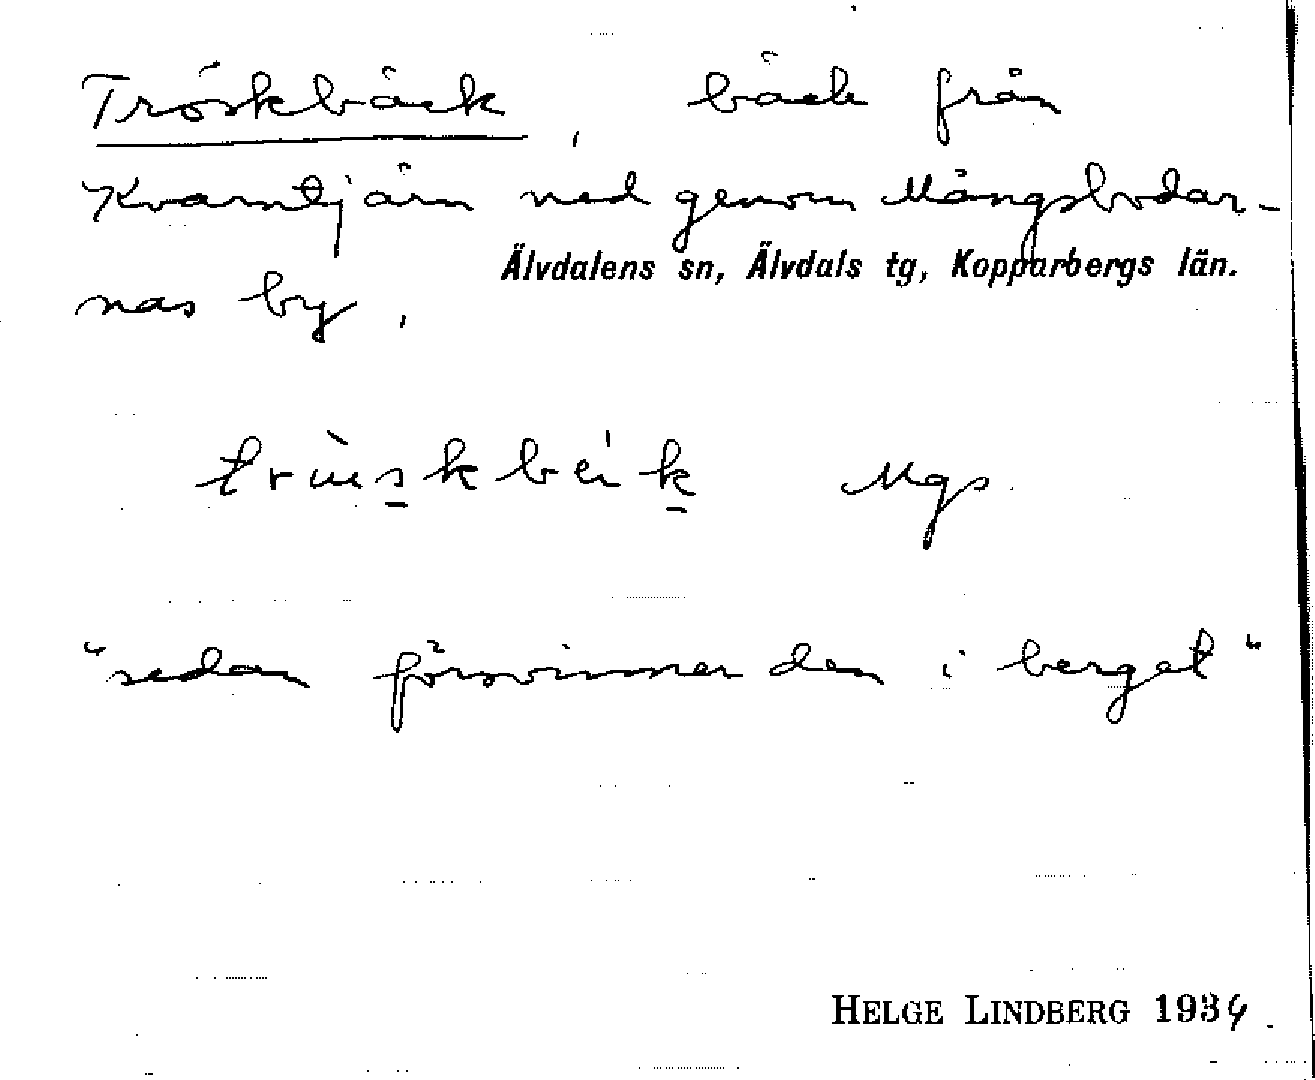 Tröskbäck, bäck från
Kvarntjärn ned genom Mångsbodar-
Älvdalens sn, Älvdals tg, Kopparbergs län.
nas by.
Mgs.
"sedan försvinner den i berget"
HELGE LINDBERG 1934.